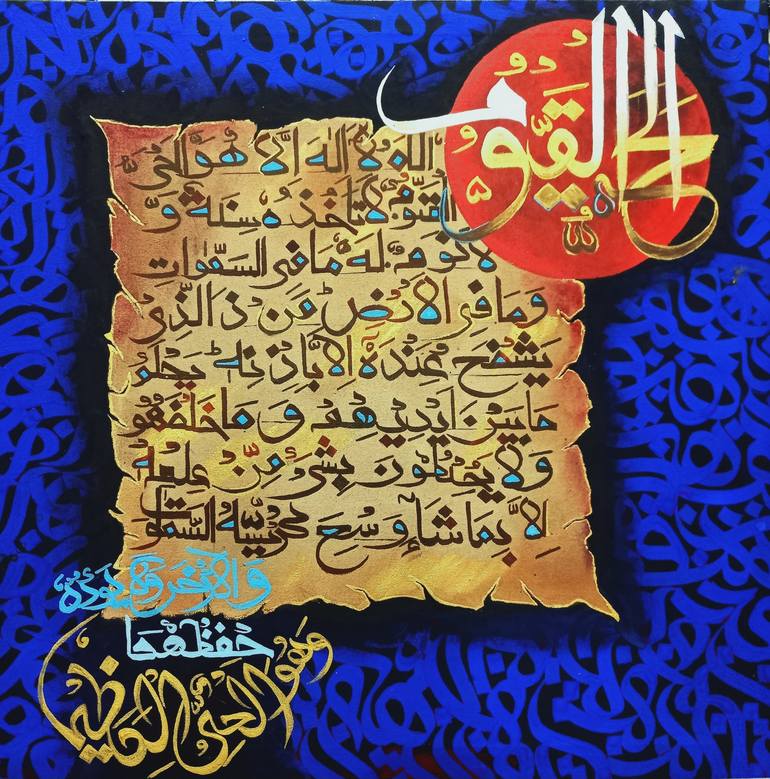 الحي القيوم
الله لا اله الا هو الحي
القيوم لا تاخذه سنة و
لا نوم له ما في السموات
وما في الارض من ذا الذي
يشفع عنده الا باذنه يعلم
ما بين ايديهم وما خلفهم
ولا يحيطون بشئ من علمه
الا بما شاء وسع كرسيه السموات
والارض ولا يوده
حفظهما
وهو العلي العظيم